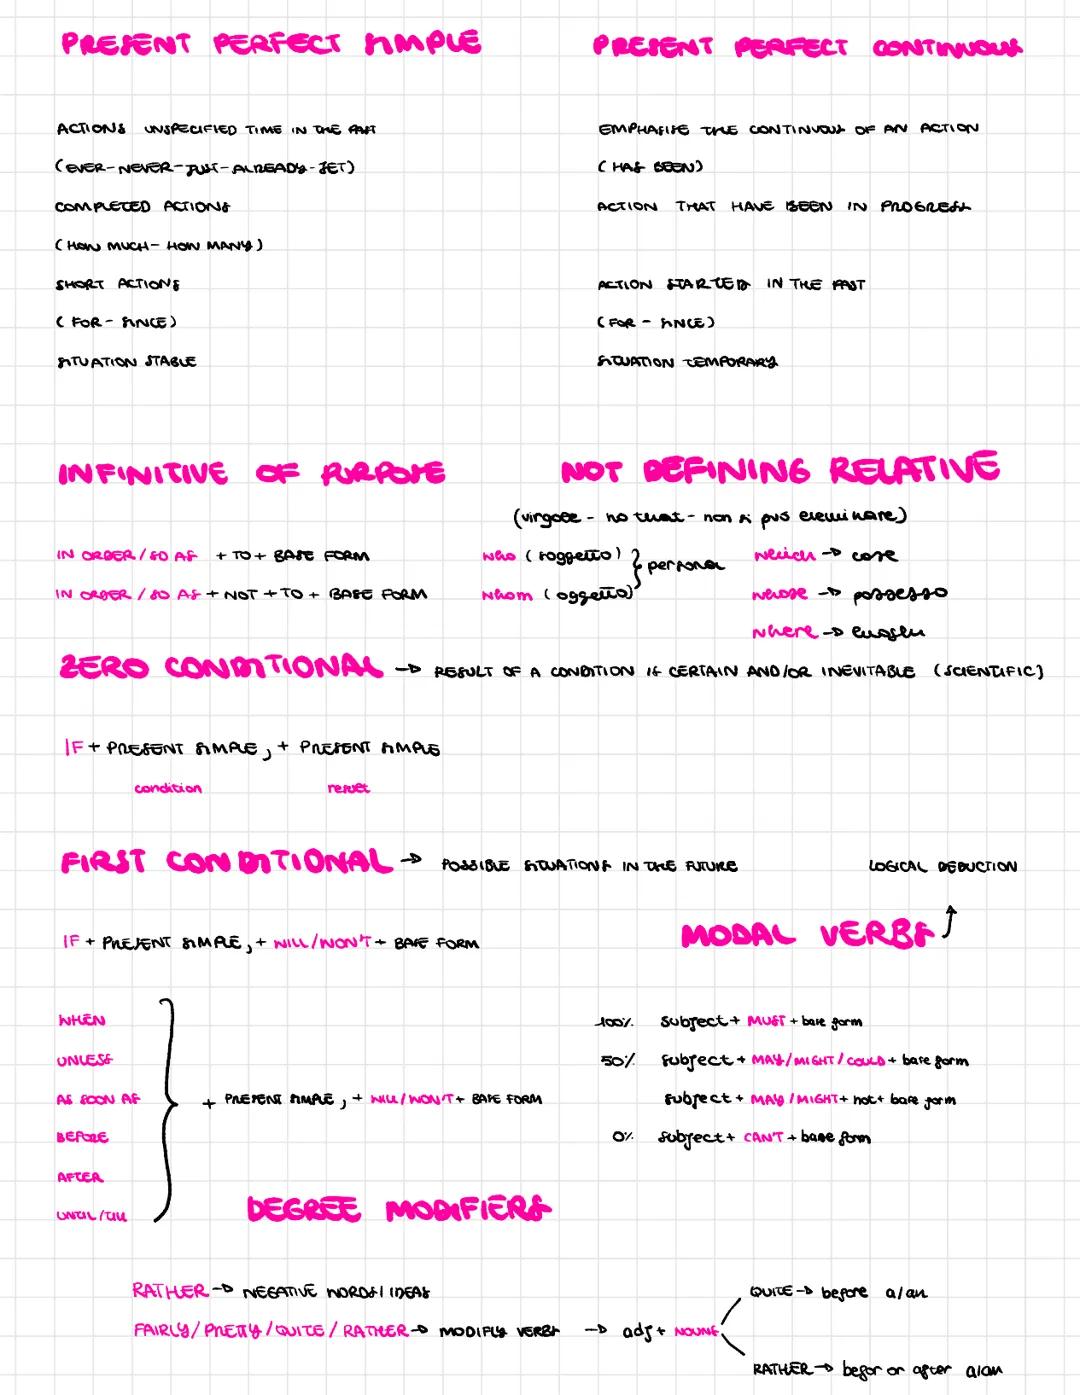 PRESENT PERFECT SIMPLE
PRESENT PERFECT CONTINUOUS
ACTIONS UNSPECIFIED TIME IN THE PAST
(EVER-NEVER-JUST-ALREADY-YET)
COMPLETED ACTIONS
(HOW MUCH- HOW MANY)
SHORT ACTIONS
(FOR- SINCE)
SITUATION STABLE
EMPHASISE THE CONTINUOUS OF AN ACTION
(HAS BEEN)
ACTION THAT HAVE BEEN IN PROGRESS
ACTION STARTED IN THE PAST
(FOR - SINCE)
SITUATION TEMPORARY
INFINITIVE OF PURPOSE
IN ORDER/SO AS + TO + BASE FORM
IN ORDER/SO AS + NOT + TO + BASE FORM
NOT DEFINING RELATIVE
(virgole - no that - non si può eliminare)
who (soggetto) } persona
whom (oggetto)
which → cose
whose → possesso
where → luoghi
ZERO CONDITIONAL → RESULT OF A CONDITION IS CERTAIN AND/OR INEVITABLE (SCIENTIFIC)
IF + PRESENT SIMPLE, + PRESENT SIMPLE
condition result
FIRST CONDITIONAL → POSSIBLE SITUATIONS IN THE FUTURE
IF + PRESENT SIMPLE, + WILL/WON'T + BASE FORM
WHEN
UNLESS
AS SOON AS
BEFORE
AFTER
UNTIL/TILL
+ PRESENT SIMPLE, + WILL/WON'T + BASE FORM
LOGICAL DEDUCTION
MODAL VERBS
100% subject + MUST + base form
50% subject + MAY/MIGHT/COULD + base form
subject + MAY/MIGHT + not + base form
0% subject + CAN'T + base form
DEGREE MODIFIERS
RATHER → NEGATIVE WORDS/IDEAS
FAIRLY/PRETTY/QUITE/RATHER → MODIFLY VERBS → adj + NOUNS
QUITE → before a/an
RATHER → befor or after a/an